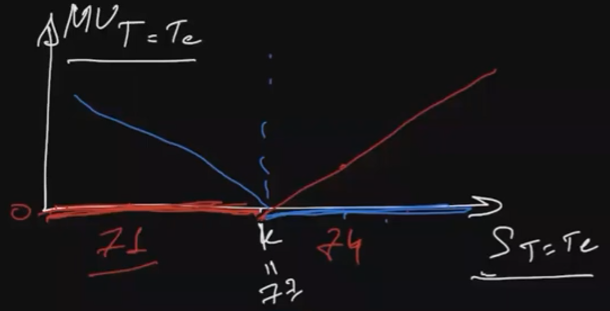 MV T=Te
0
71 K 74
=
72
S T=Te